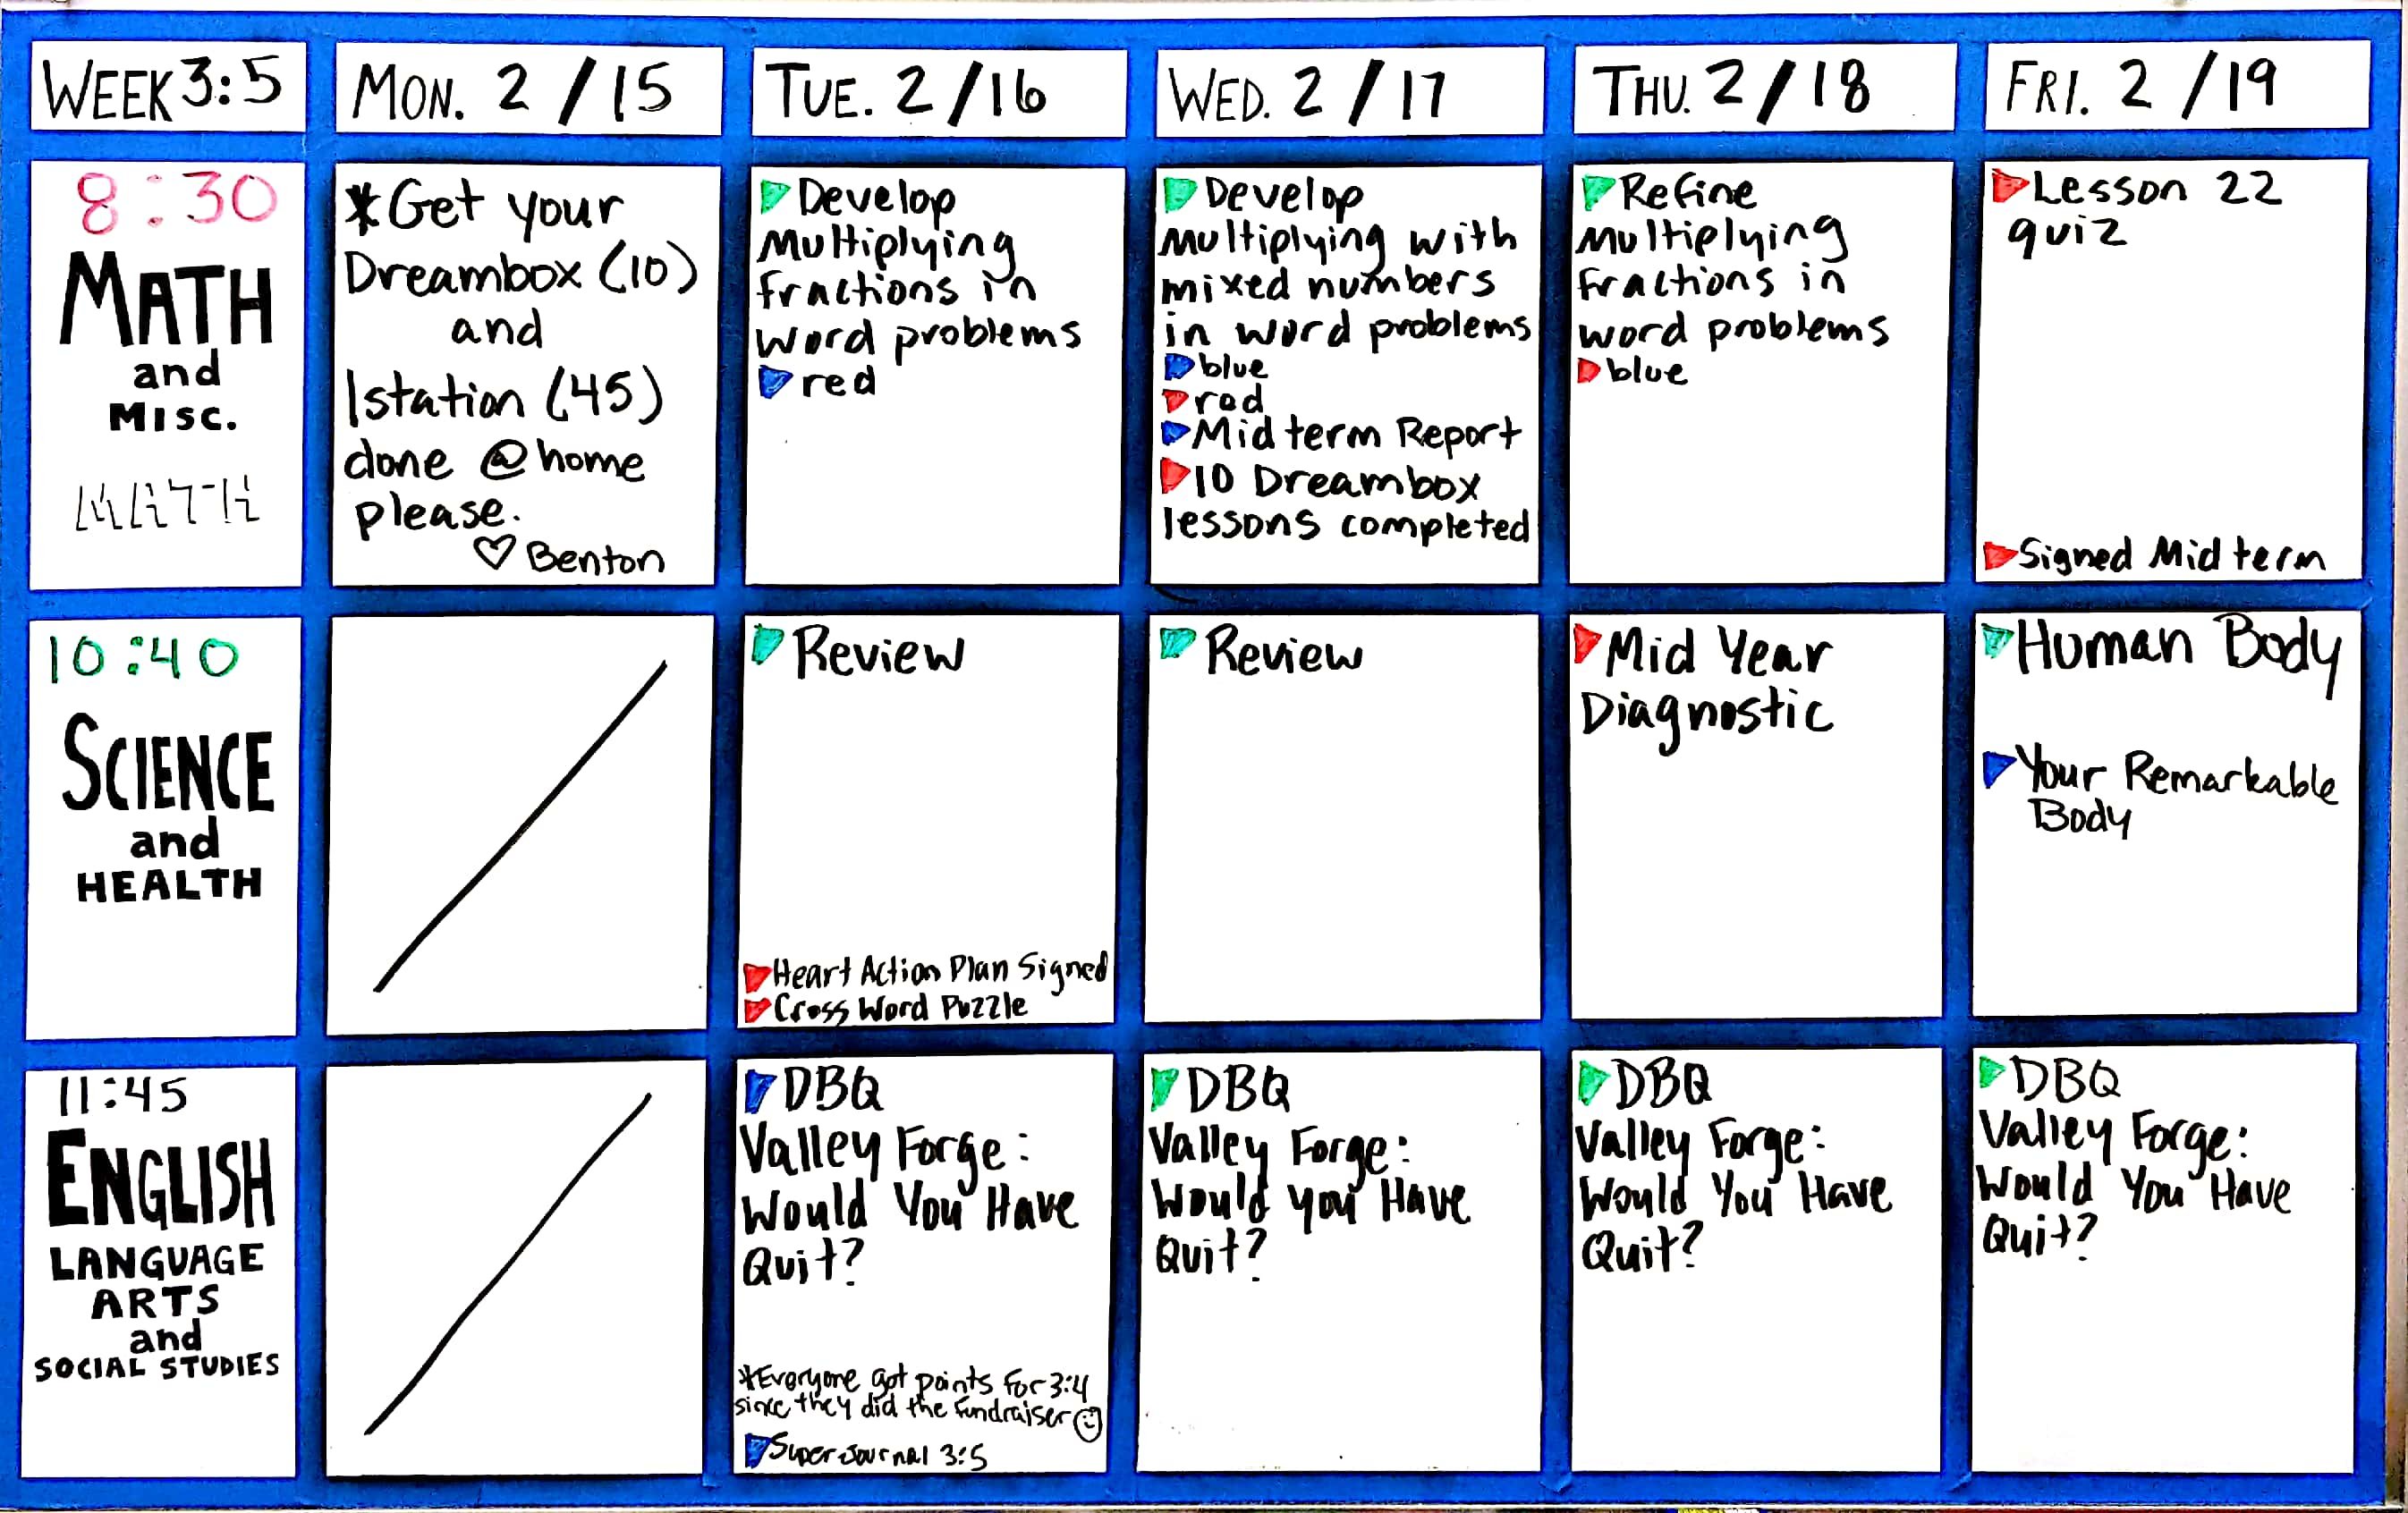 WEEK 3:5
MON. 2/15
TUE. 2/16
WED. 2/17
THU. 2/18
FRI. 2/19
8:30
MATH
and
MISC.
MATH
*Get your
Dreambox (10)
and
Istation (45)
done @home
please.
♡ Benton
Develop
Multiplying
fractions in
word problems
red
Develop
multiplying with
mixed numbers
in word problems
blue
red
Midterm Report
10 Dreambox
lessons completed
Refine
multiplying
fractions in
word problems
blue
Lesson 22
quiz
Signed Midterm
10:40
SCIENCE
and
HEALTH
Review
Heart Action Plan Signed
Cross Word Puzzle
Review
Mid Year
Diagnostic
Human Body
Your Remarkable
Body
11:45
ENGLISH
LANGUAGE
ARTS
and
SOCIAL STUDIES
DBQ
Valley Forge:
Would You Have
Quit?
*Everyone got points for 3:4
since they did the fundraiser ☺
Super Journal 3:5
DBQ
Valley Forge:
Would you Have
Quit?
DBQ
Valley Forge:
Would You Have
Quit?
DBQ
Valley Forge:
Would You Have
Quit?